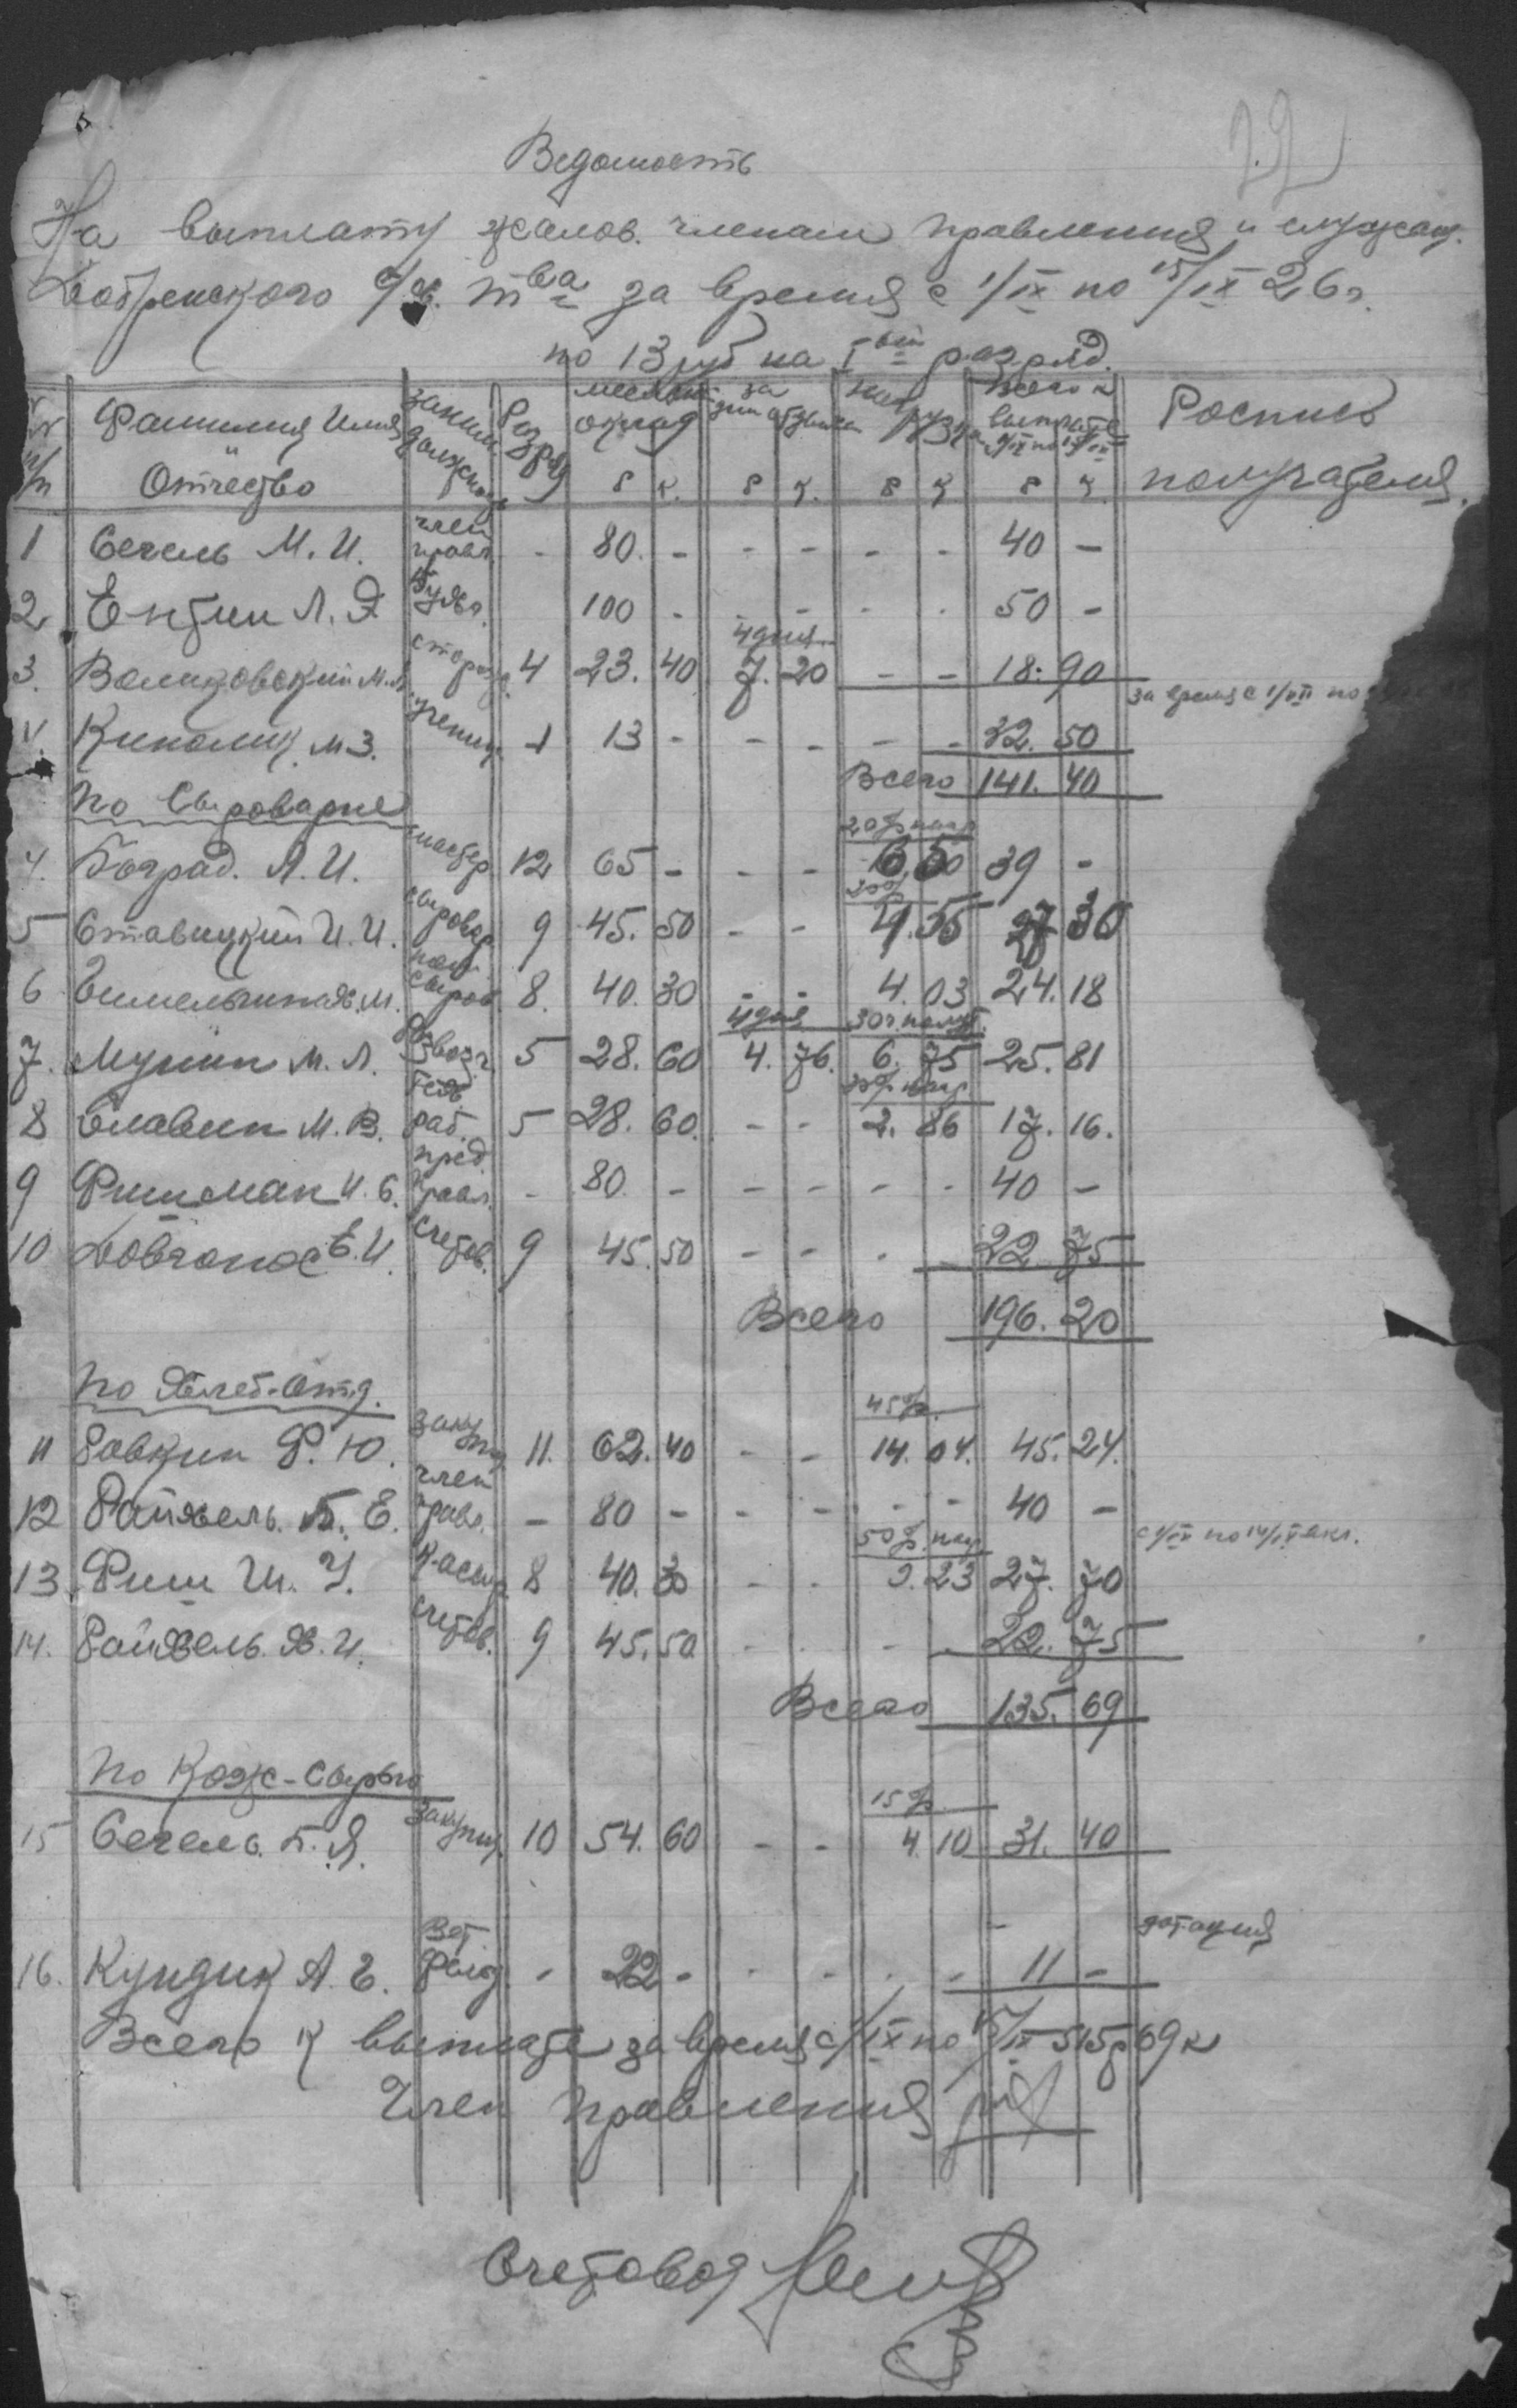 22
Ведомость
На выплату жалов. членам правления и служащ.
Добренского с/х. тва за время с 1/IX по 15/IX 26 г.
по 13 руб на Iый разряд.
№ п/п Фамилия Имя Отчество Заним. должность Разряд месячн. оклад р к. за дни отдыха р к. нагрузка р к всего к выплате с 1/IX по 15/IX р к. Роспись получателя.
1 Сегель М. И. член правл. - 80. - - - - - 40 -
2 Ентин Л. Э бухг. 100 - - - - - 50 -
4 дня
3. Воликовский М. сторож. 4 23. 40 7. 20 - - 18. 90
за время с 1/ по
4. Киналик М З. ученик 1 13 - - - - - 32. 50
Всего 141. 40
По Сыроварне
20% нагр
4. Боград. Л. И. мастер 12 65 - - - 6 50 39 -
20%
5 Ставицкий И. И. сыровар 9 45. 50 - - 4. 55 27 30
6 М. пом. сыров. 8. 40. 30 - - 4. 03 24. 18
4 дня 30 ч.
7. Мунин М. Л. развозч. 5 28. 60 4. 76. 6. 75 25. 81
20% нагр
8 Славин М. В. раб. 5 28. 60. - - 2. 86 17. 16.
9 Фишман И. С. пред. правл. - 80 - - - - - 40 -
10 Е. И. счетов. 9 45. 50 - - - - 22. 75
Всего 196. 20
По Хлеб-Отд.
45%.
11 Ровкин Ф. Ю. закуп. 11. 62. 40 - - 14. 04. 45. 24.
12 Райхель. Б. Е. член правл. - 80 - - - - - 40 -
50% нагр с 1/IX по 14/IX вкл.
13. Фиш Ш. У. кассир 8 40. 30 - - 9. 23 27. 70
14. Райхель. Я. И. счетов. 9 45. 50 - - - - 22. 75
Всего 135. 69
По Кож-Сырью
15%
15 Сегель. Б. Я. закупщ. 10 54. 60 - - 4. 10 31. 40
дотация
16. Кундик А. Е. Вет. фельд. - 22 - - - - - 11 -
Всего к выплате за время с 1/IX по 15/IX 515 р 69 к
Член Правления
Счетовод